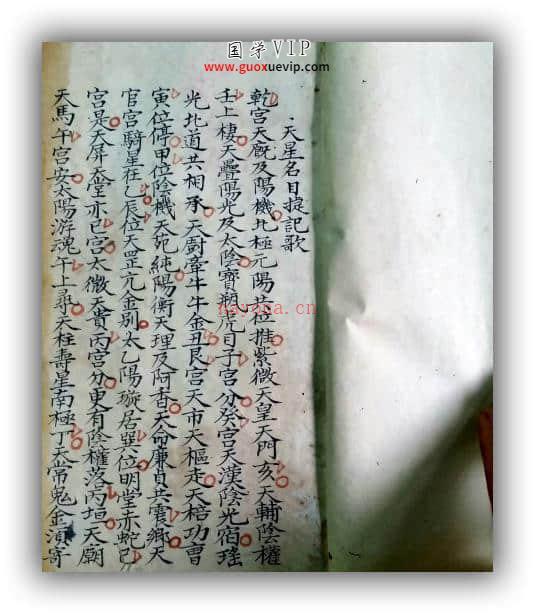 国学VIP
www.guoxuevip.com
天星名目捉記歌
乾宮天厩及陽機北極元陽共位推紫微天皇天門亥天輔陰權
壬上棲天疊陽光及太陰寶瓶虎日子宮分癸宮天漢陰光宿瑤
光北道共相承天廚牽牛牛金丑艮宮天市天樞走天棓功曹
寅位停甲位陰機天苑純陽衡天理及阿香天命廉貞共震鄉天
官宮騎星在乙辰位天罡亢金別太乙陽璇居巽位明堂亦蛇巳
宮是天屏天堂亦巳宮太微天貴丙宮分更有陰權落丙垣天廟
天馬午宮安太陽游魂午上尋天柱壽星南極丁天常鬼金湏寄